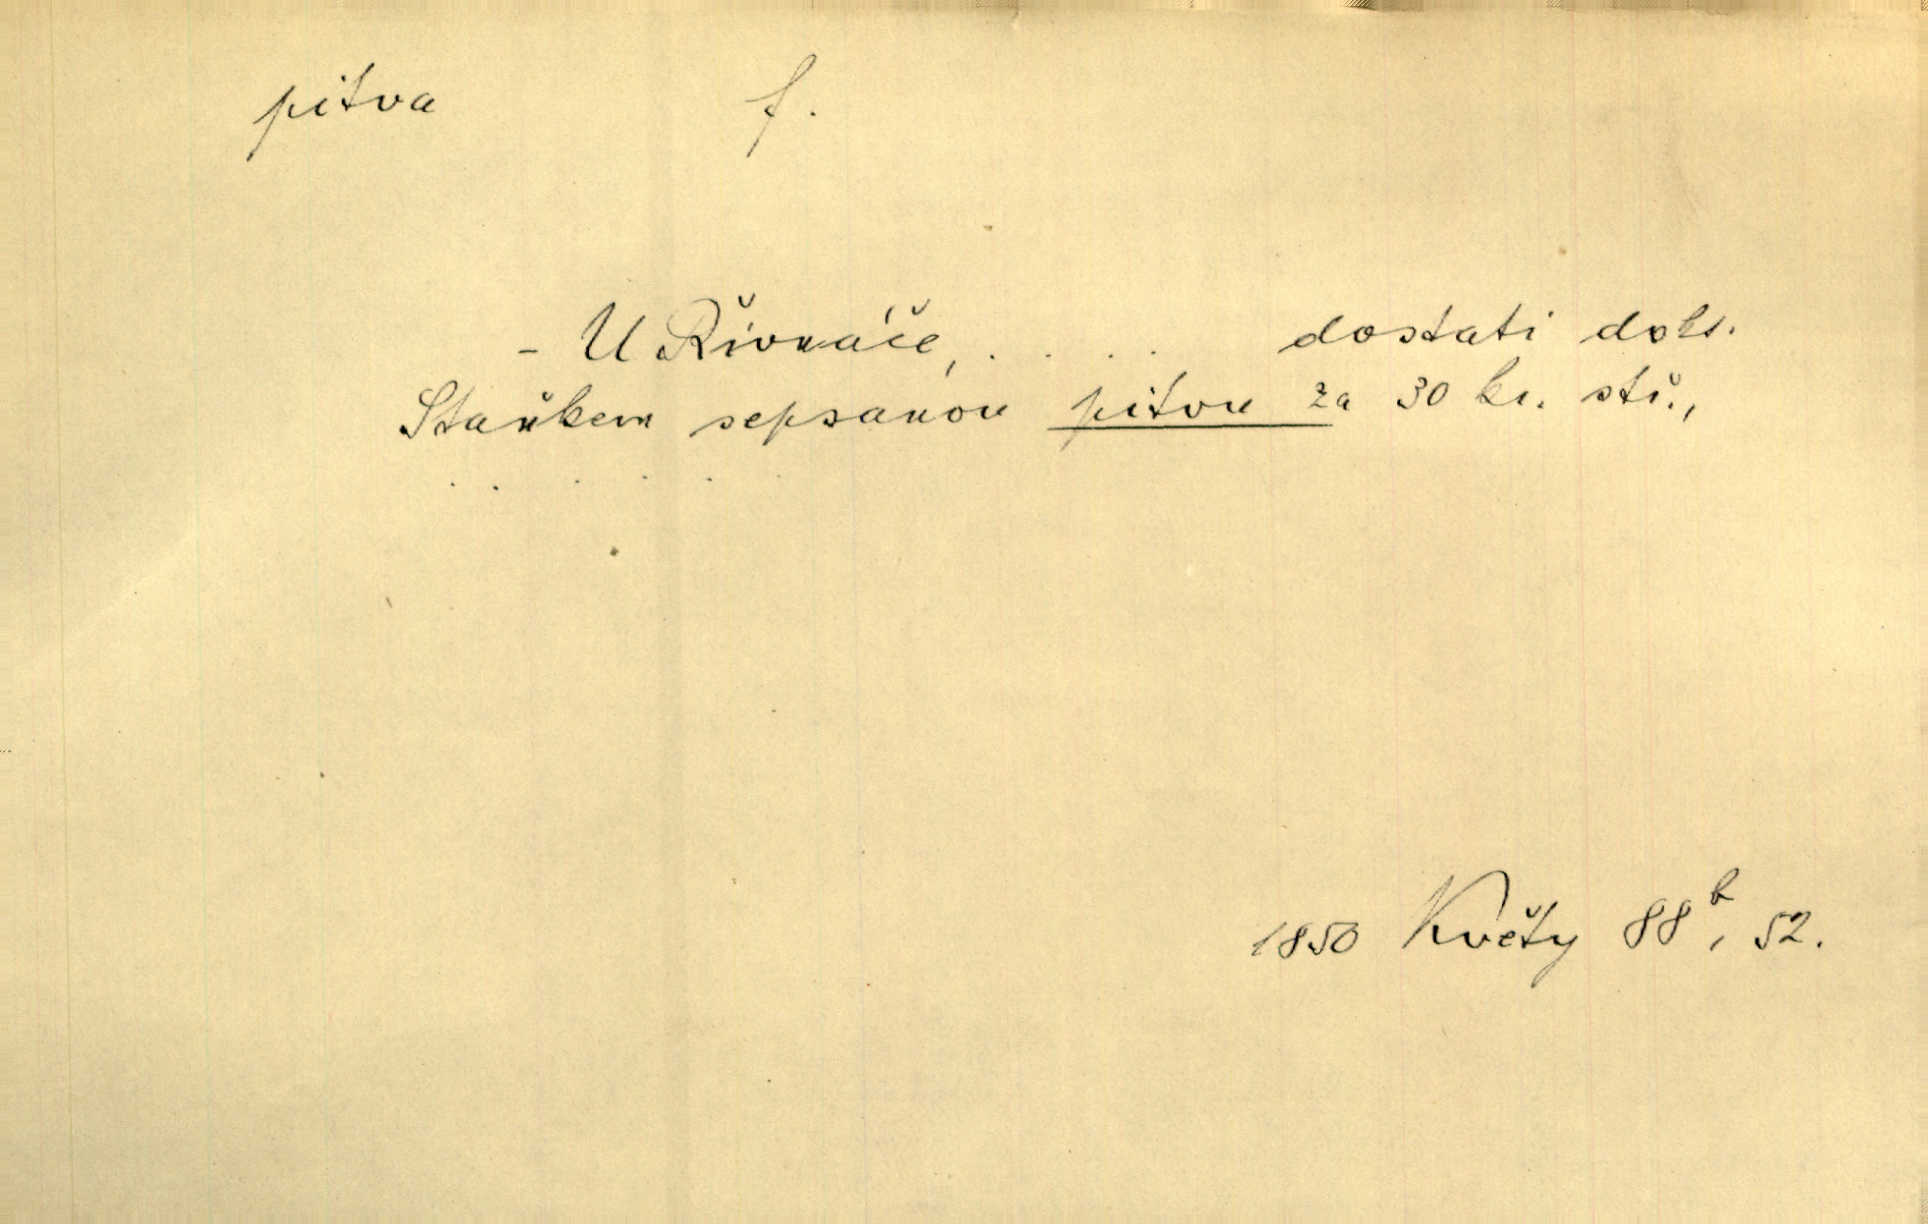 pitva f.
- U Řivnáče, . . . . dostati dokt.
Staňkem sepsanou pitvu za 30 kr. stř.,
. . . . . .
1850 Květy 88 b, 52.